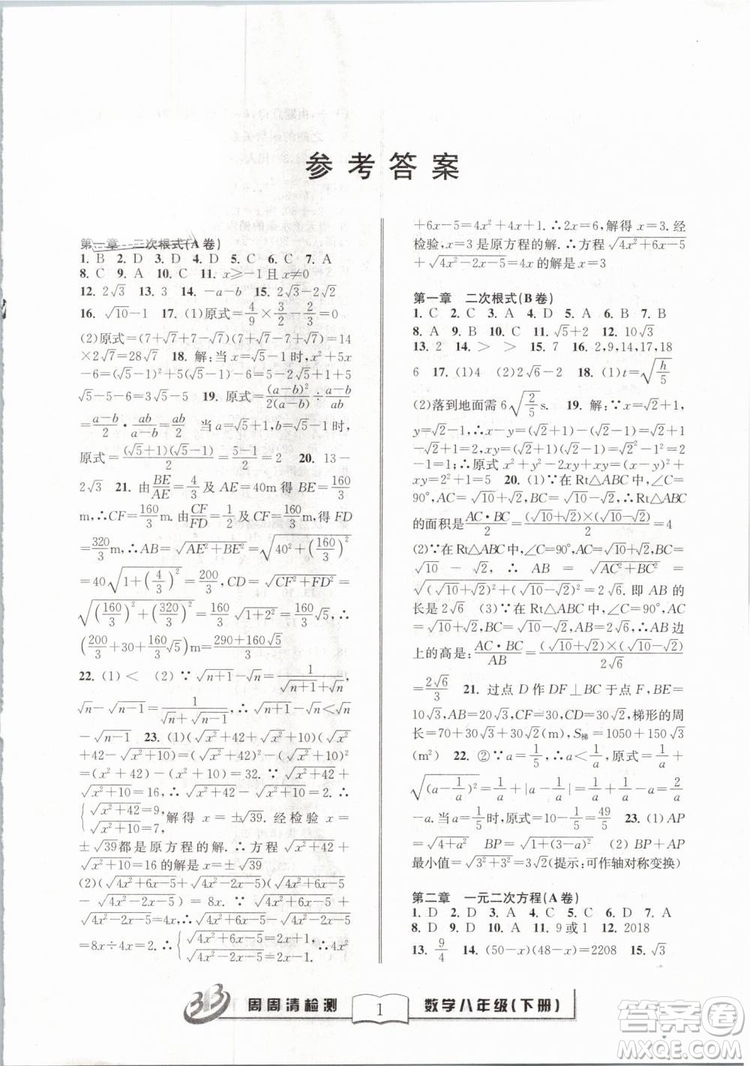 参考答案
第一章 二次根式(A卷)
1. B 2. D 3. D 4. D 5. C 6. C 7. A
8. C 9. A 10. A 11. x≥-1且x≠0
12. 2√3 13. 4 14. -a-b 15. 3√2-2√3
16. √10-1 17. (1)原式=√(4/9×3/2)-√(2/3)=0
(2)原式=(7+√7+7-√7)(7+√7-7+√7)=14
×2√7=28√7 18. 解:当x=√5-1时,x²+5x
-6=(√5-1)²+5(√5-1)-6=5-2√5+1+
5√5-5-6=3√5-5 19. 原式=(a-b)²/2(a-b)÷(a-b)/ab
=(a-b)/2·ab/(a-b)=ab/2 当a=√5+1,b=√5-1时,
原式=(√5+1)(√5-1)/2=(5-1)/2=2 20. 13-
2√3 21. 由BE/AE=4/3及AE=40m得BE=
160/3m. ∴CF=160/3m. 由CF/FD=1/2得FD=
320/3m.∴AB=√(AE²+BE²)=√(40²+(160/3)²)
=40√(1+(4/3)²)=200/3,CD=√(CF²+FD²)=
√((160/3)²+(320/3)²)=160/3√(1+2²)=160/3√5m.∴
(200/3+30+160/3√5)m=(290+160√5)/3m
22. (1)< (2)∵√n-√(n-1)=1/(√n+√(n-1)),
√(n+1)-√n=1/(√(n+1)+√n),∴√(n+1)-√n<√n
-√(n-1) 23. (1)(√(x²+42)+√(x²+10))(√(x²+42)
-√(x²+10))=(√(x²+42))²-(√(x²+10))²=(x²
+42)-(x²+10)=32. ∵√(x²+42)+
√(x²+10)=16,∴√(x²+42)-√(x²+10)=32÷16=2.
∴{√(x²+42)=9,√(x²+10)=7. 解得x=±√39. 经检验x=
±√39都是原方程的解.∴方程√(x²+42)+
√(x²+10)=16的解是x=±√39
(2)(√(4x²+6x-5)+√(4x²-2x-5))(√(4x²+6x-5)
-√(4x²-2x-5))=8x. ∴√(4x²+6x-5)-√(4x²-2x-5)
=8x÷4x=2.∴{√(4x²+6x-5)=2x+1,√(4x²-2x-5)=2x-1. ∵4x²
+6x-5=4x²+4x+1.∴2x=6,解得x=3. 经
检验,x=3是原方程的解.∴方程√(4x²+6x-5)
+√(4x²-2x-5)=4x的解是x=3
第一章 二次根式(B卷)
1. C 2. C 3. A 4. D 5. A 6. B 7. B
8. A 9. B 10. C 11. √5+1 12. 10√3
13. 2 14. > > 15. 7 16. 2,9,14,17,18
6 17. (1)4 (2)2-√2 18. (1)t=√(h/5)
(2)落到地面需6√(2/5)s. 19. 解:∵x=√2+1,
y=√2-1,∴x-y=(√2+1)-(√2-1)=2.
xy=(√2+1)(√2-1)=1.∴原式x²+y²-2xy+
xy=2²+1=5 20. (1)∵在Rt△ABC中,∠C=
90°,AC=√10+√2,BC=√10-√2. ∴Rt△ABC
的面积是AC·BC/2=(√10+√2)(√10-√2)/2=4
(2)∵在Rt△ABC中,∠C=90°,AC=
√10+√2,BC=√10-√2. ∴AB=√(AC²+BC²)=
√((√10+√2)²+(√10-√2)²)=2√6. 即AB的
长是2√6 (3)∵在Rt△ABC中,∠C=90°,
AC=√10+√2,BC=√10-√2. AB=2√6. ∴AB
边上的高是:AC·BC/AB=(√10+√2)(√10-√2)/2√6
=2√6/3 21. 过点D作DF⊥BC于点F,BE=
10√3,AB=30√2,CF=30,CD=30√2,梯形的周
长=70+10√3+30√2(m),S梯=1050+150√3
(m²) 22. ②∵a=1/5,∴a<1/a,∴原式=1/a+
√((a-1/a)²)=1/a+|a-1/a|=1/a+1/a-a=2/a
-a. 当a=1/5时,原式=10-1/5=9 4/5 23. (1)AP
=√(4+x²),BP=√(1+(3-x)²) (2)BP+AP
最小值=√(3²+3²)=3√2(提示:可作轴对称变换)
第二章 一元二次方程(A卷)
1. D 2. D 3. A 4. C 5. C 6. B 7. A
8. D 9. D 10. A 11. 9或1 12. 2018
13. 9/4 14. (50-x)(48-x)=2208 15. √3
周周清检测 1 数学八年级(下册)
答案圈
MXQE.COM